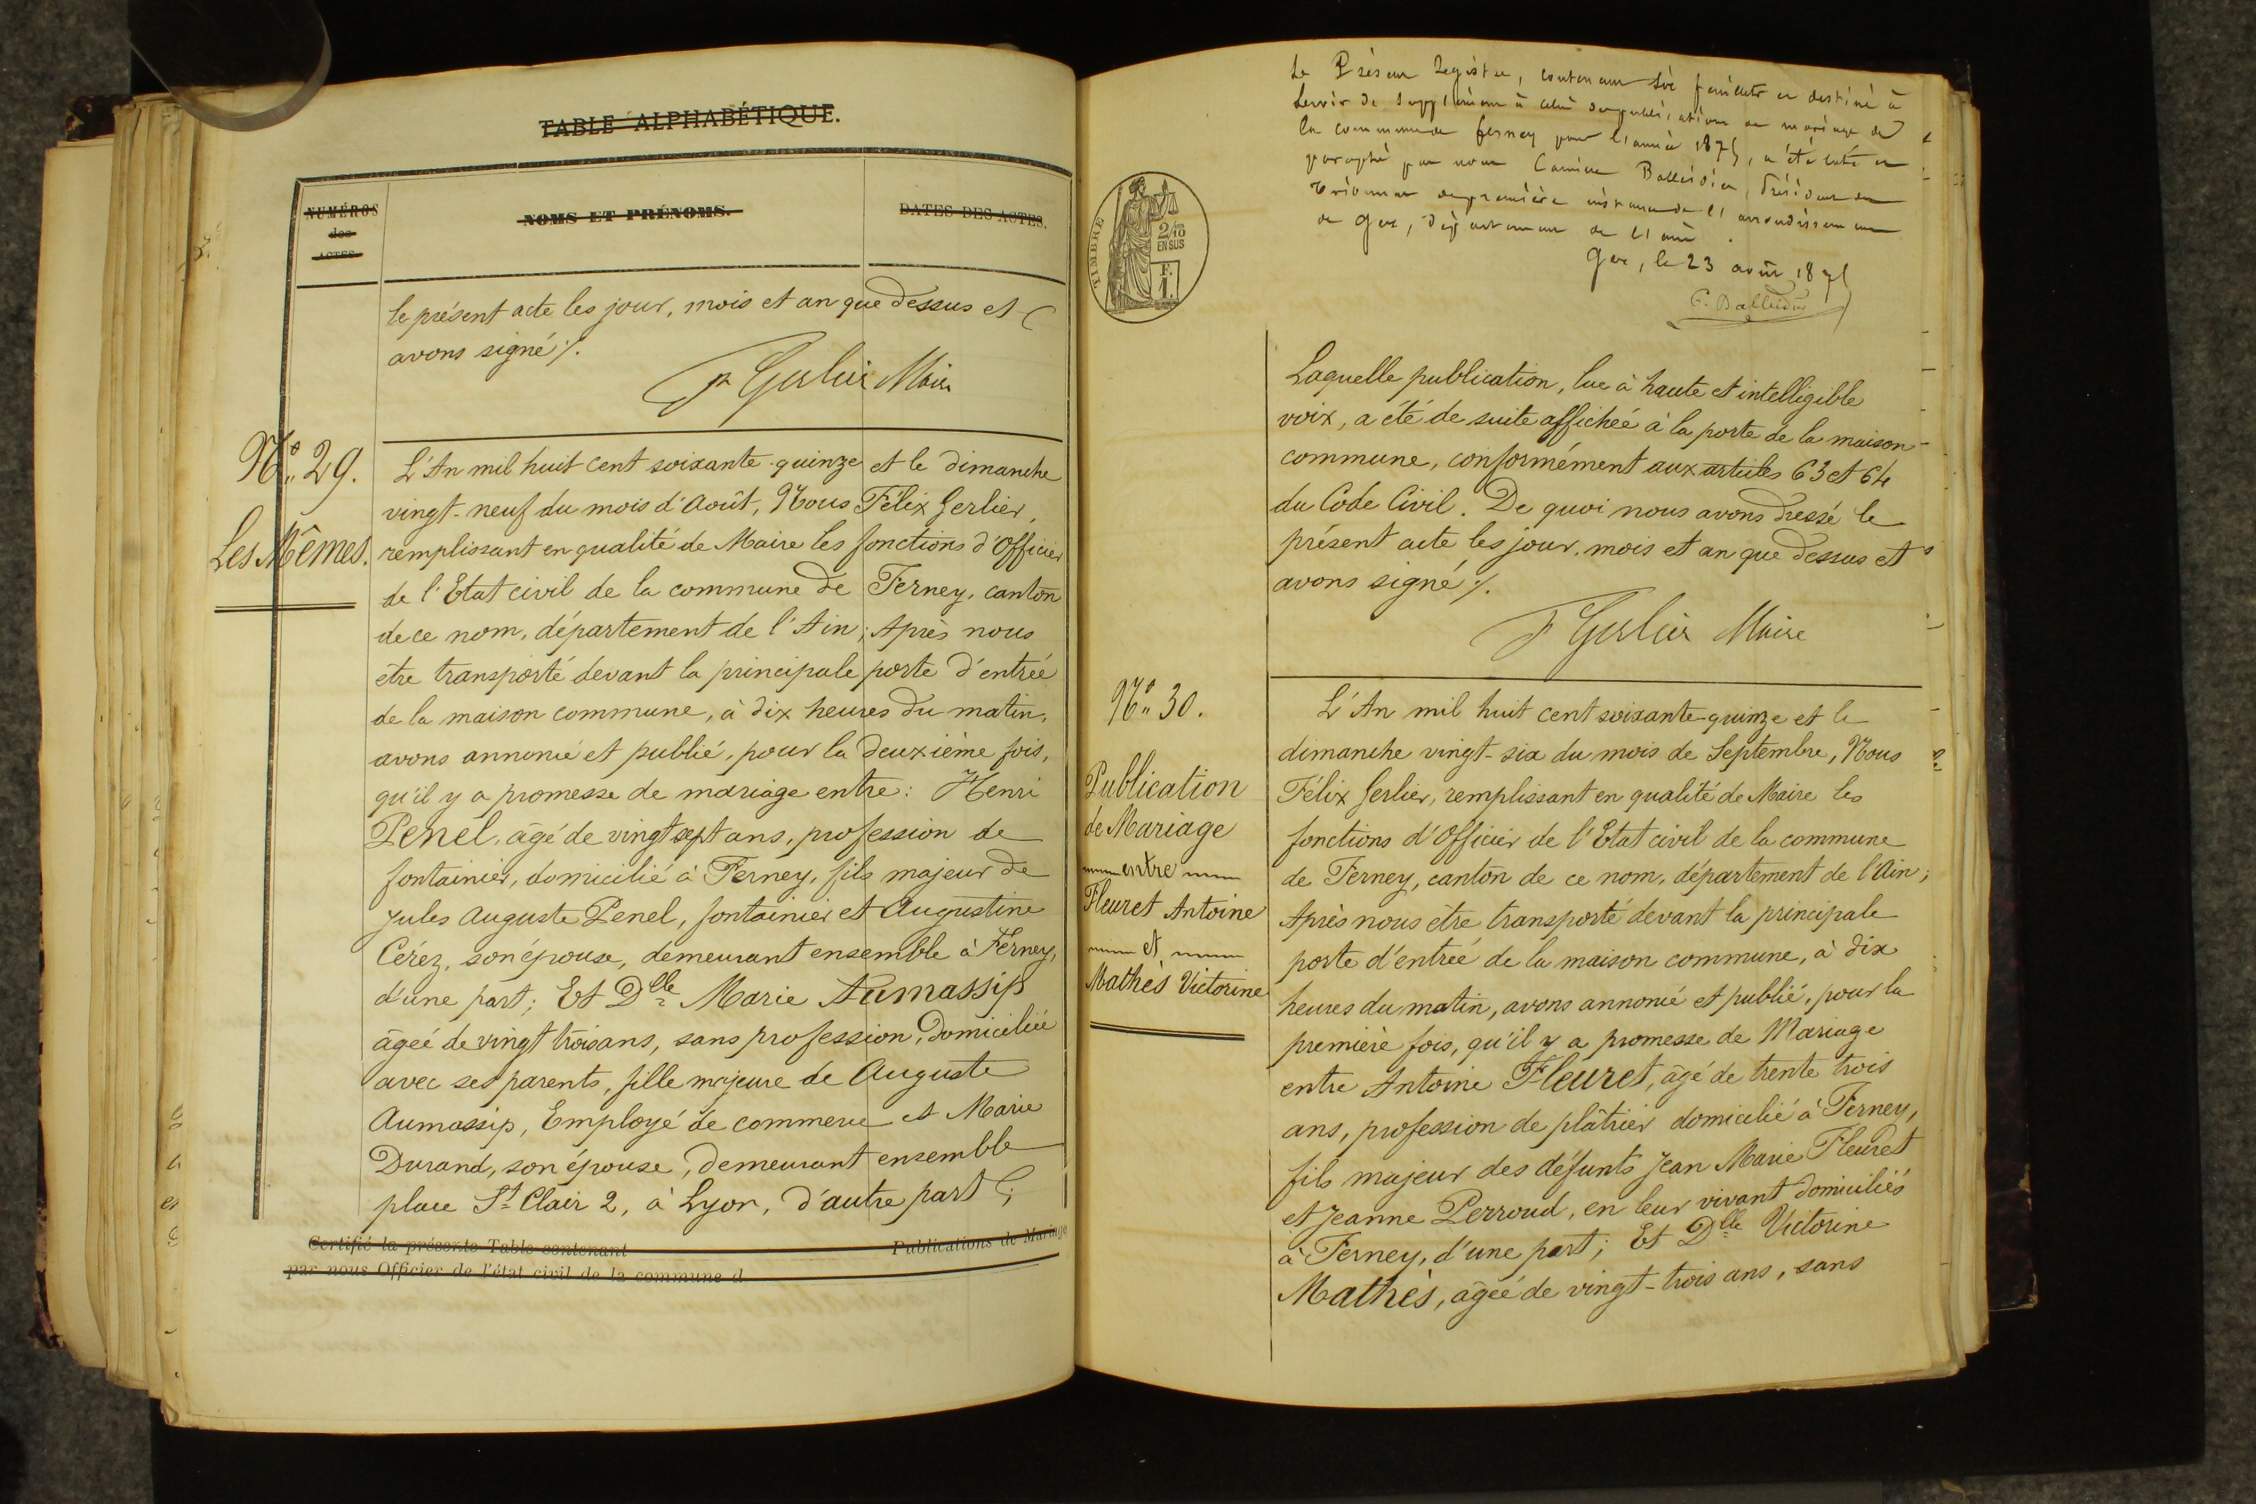 TABLE ALPHABÉTIQUE.
NUMÉROS
des
ACTES
NOMS ET PRÉNOMS.
DATES DES ACTES.
le présent acte les jour, mois et an que dessus et
avons signé ./.
F Gerlier Maire
N° 29.
Les Mêmes.
L'An mil huit cent soixante-quinze et le dimanche
vingt-neuf du mois d'Août, Nous Félix Gerlier,
remplissant en qualité de Maire les fonctions d'Officier
de l'Etat civil de la commune de Ferney, canton
de ce nom, département de l'Ain; Après nous
être transporté devant la principale porte d'entrée
de la maison commune, à dix heures du matin,
avons annoncé et publié, pour la deuxième fois,
qu'il y a promesse de mariage entre: Henri
Penel, âgé de vingt sept ans, profession de
fontainier, domicilié à Ferney, fils majeur de
Jules Auguste Penel, fontainier et Augustine
Cérez, son épouse, demeurant ensemble à Ferney,
d'une part; Et Dlle Marie Aumassip
âgée de vingt trois ans, sans profession, domiciliée
avec ses parents, fille majeure de Auguste
Aumassip, Employé de commerce et Marie
Durand, son épouse, demeurant ensemble
place St Clair 2, à Lyon, d'autre part;
Certifié la présente Table contenant Publications de Mariage
par nous Officier de l'état civil de la commune d
TIMBRE
2/10
EN SUS
F.
1.
Le Présent Registre, contenant six feuillets et destiné à
servir de supplément à celui des publications de mariage de
la commune de ferney pour l'année 1875, a été coté et
paraphé par nous Camille Balleidier, Président du
tribunal de première instance de l'arrondissement
de Gex, département de l'ain.
Gex, le 23 août 1875
C. Balleidier
Laquelle publication, lue à haute et intelligible
voix, a été de suite affichée à la porte de la maison
commune, conformément aux articles 63 et 64
du Code Civil. De quoi nous avons dressé le
présent acte les jour, mois et an que dessus et
avons signé ./.
F Gerlier Maire
N° 30.
Publication
de Mariage
entre
Fleuret Antoine
et
Mathès Victorine
L'An mil huit cent soixante-quinze et le
dimanche vingt-six du mois de Septembre, Nous
Félix Gerlier, remplissant en qualité de Maire les
fonctions d'Officier de l'Etat civil de la commune
de Ferney, canton de ce nom, département de l'Ain;
Après nous être transporté devant la principale
porte d'entrée de la maison commune, à dix
heures du matin, avons annoncé et publié, pour la
première fois, qu'il y a promesse de Mariage
entre Antoine Fleuret, âgé de trente trois
ans, profession de plâtrier domicilié à Ferney,
fils majeur des défunts Jean Marie Fleuret
et Jeanne Perroud, en leur vivant domiciliés
à Ferney, d'une part; Et Dlle Victorine
Mathès, âgée de vingt-trois ans, sans